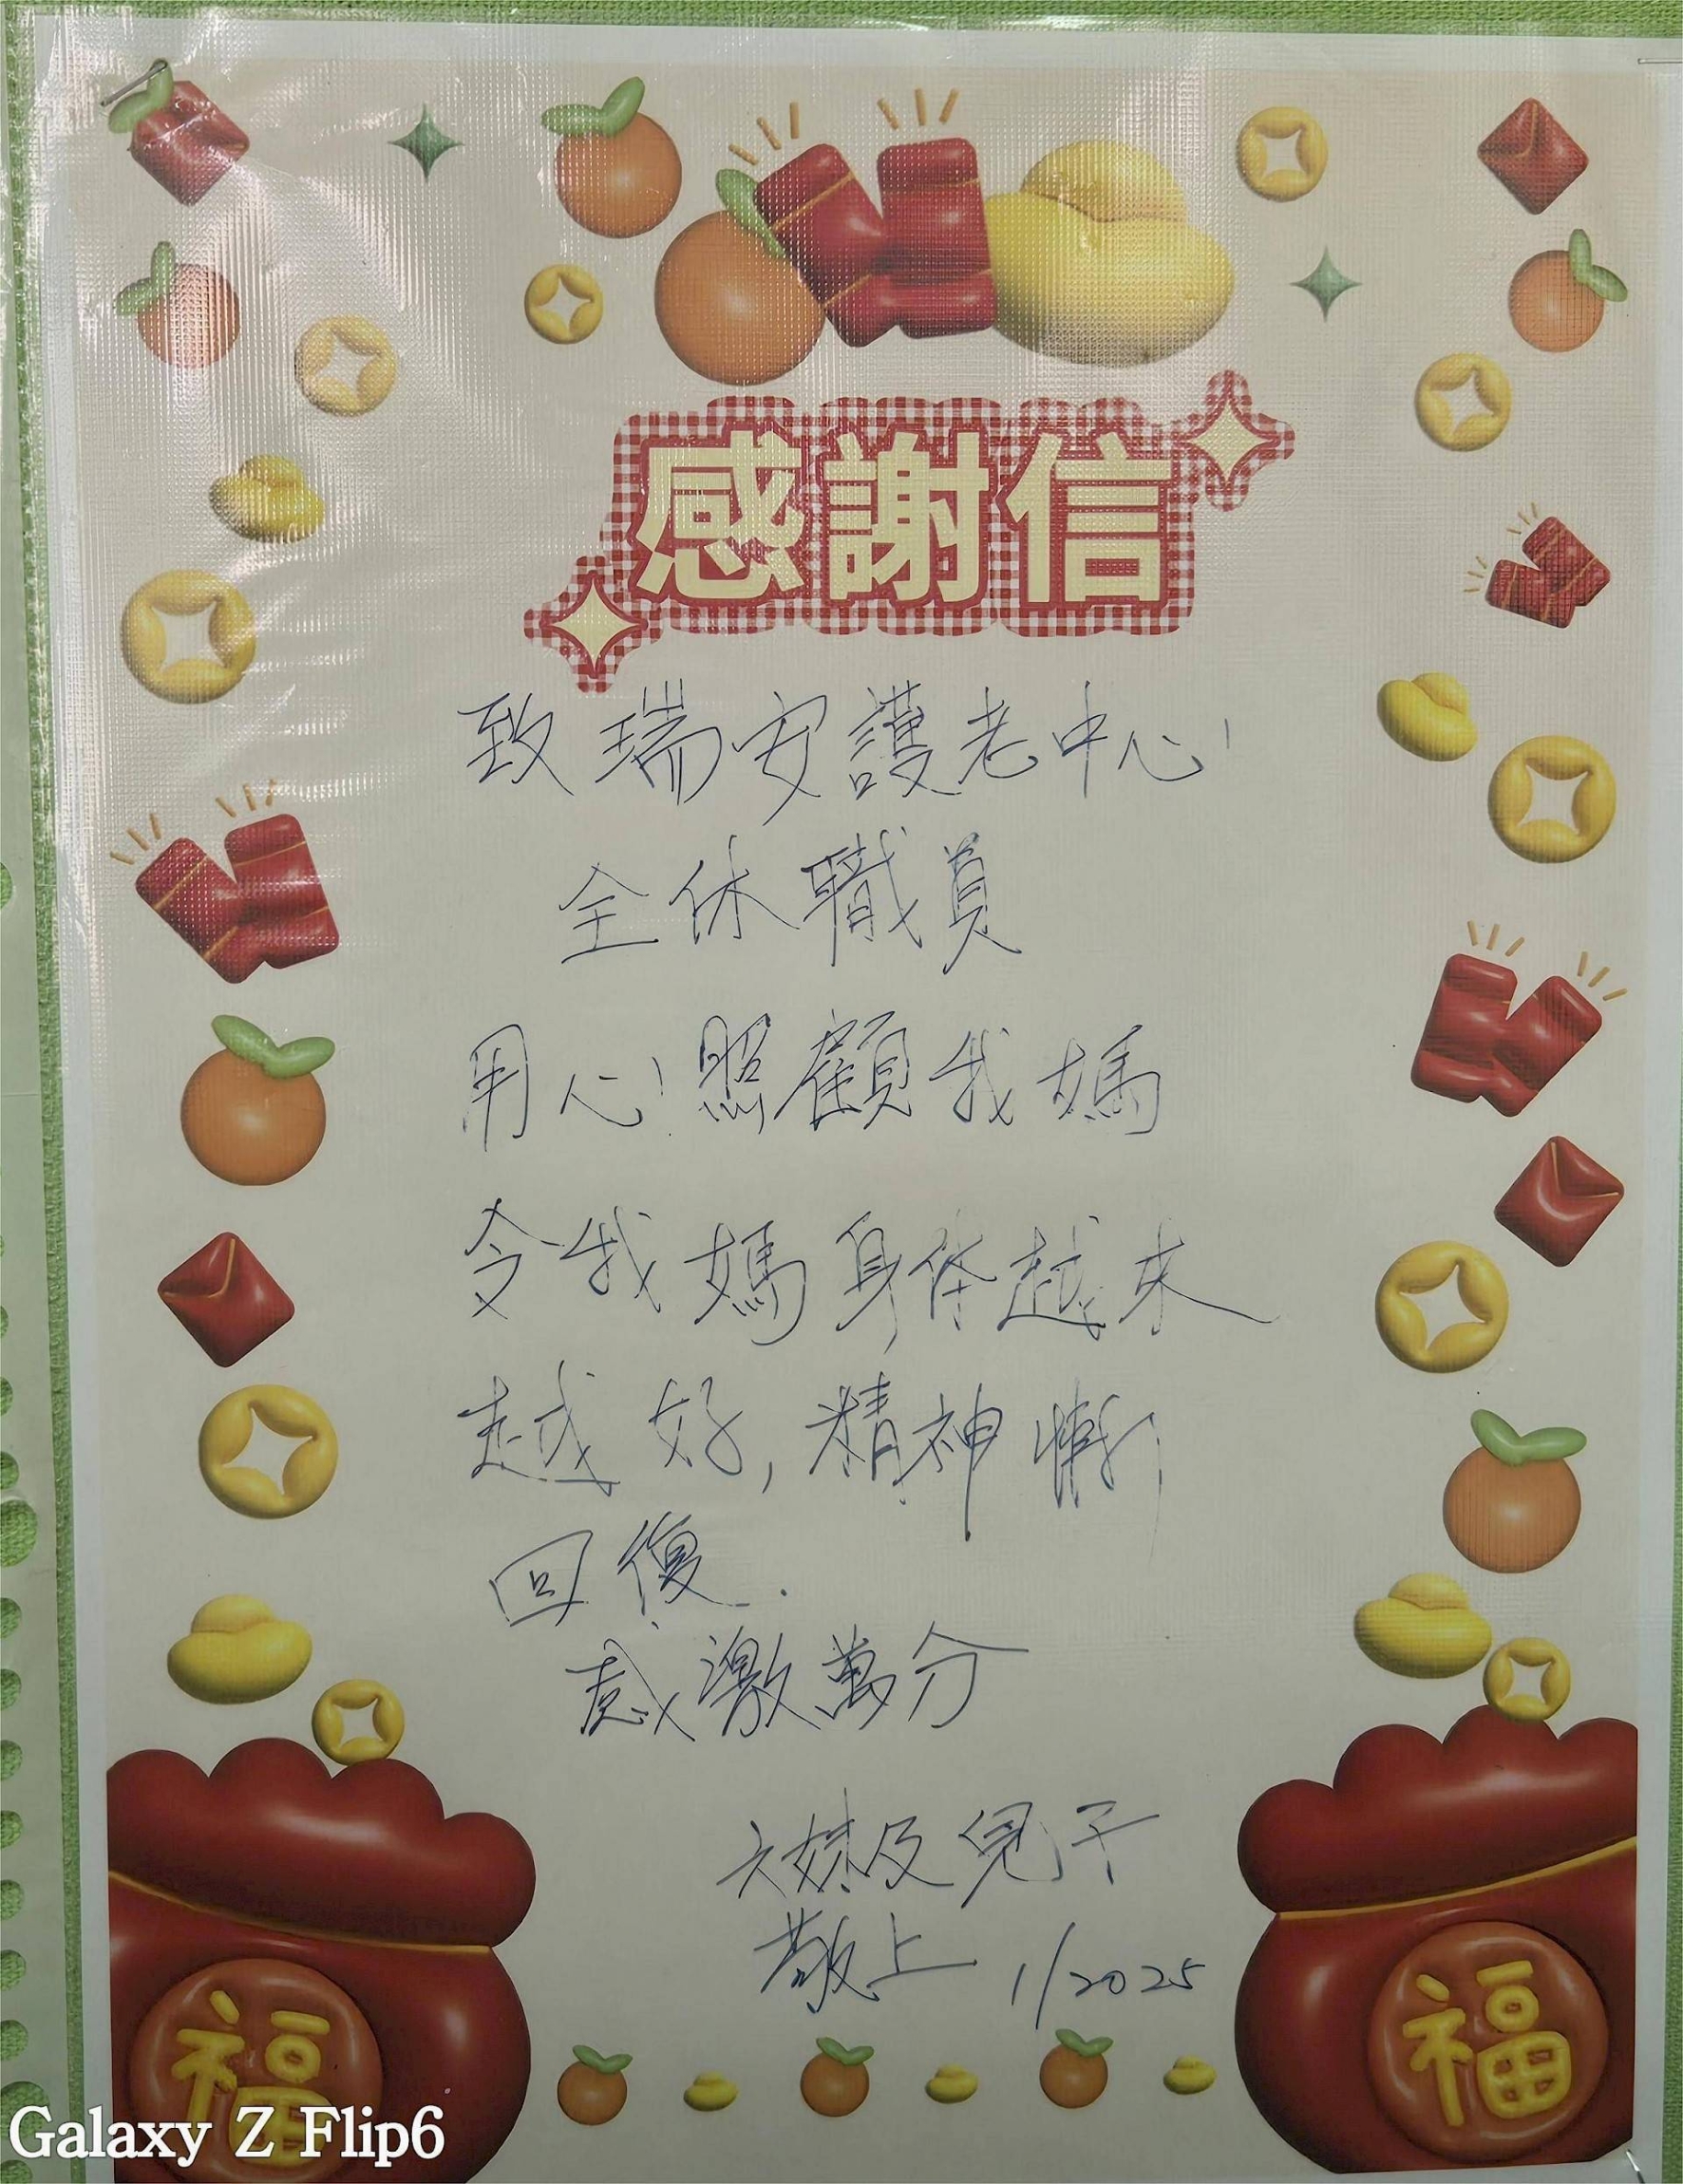 感謝信
致瑞安護老中心
全体職員
用心照顧我媽
令我媽身体越來
越好，精神漸
回復．
感激萬分
六妹及兒子
敬上 1/2025
福
福
Galaxy Z Flip6